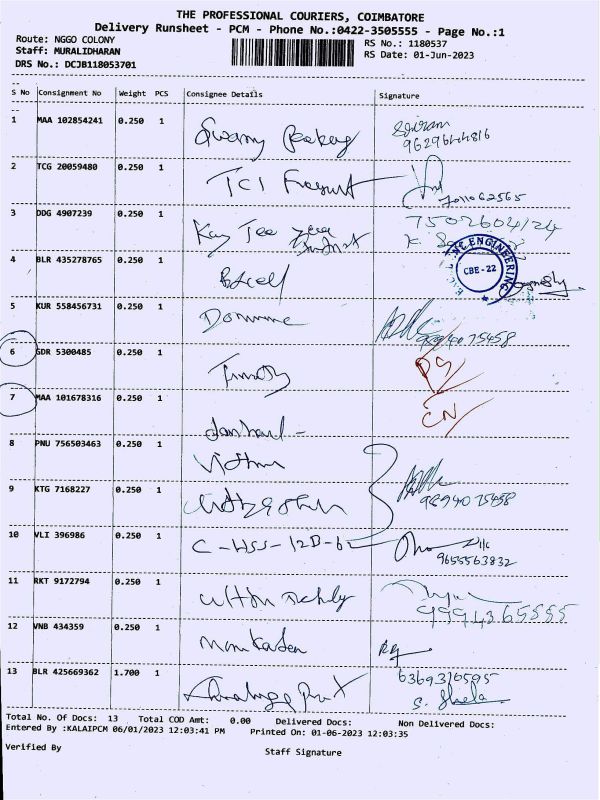 THE PROFESSIONAL COURIERS, COIMBATORE
Delivery Runsheet - PCM - Phone No.:0422-3505555 - Page No.:1
Route: NGGO COLONY RS No.: 1180537
Staff: MURALIDHARAN RS Date: 01-Jun-2023
DRS No.: DCJB118053701
S No Consignment No Weight PCS Consignee Details Signature
1 MAA 102854241 0.250 1 Swamy
9629644816
2 TCG 20059480 0.250 1 TCI
7011062565
3 DDG 4907239 0.250 1 Kay Tee
7502604124
4 BLR 435278765 0.250 1
ENGINEERING
CBE-22
5 KUR 558456731 0.250 1
9894075458
6 GDR 5300485 0.250 1 Timothy
7 MAA 101678316 0.250 1
CN
8 PNU 756503463 0.250 1
9 KTG 7168227 0.250 1
9894075458
10 VLI 396986 0.250 1 C-HSS-12B-6
9655563832
11 RKT 9172794 0.250 1
9994365555
12 VNB 434359 0.250 1
13 BLR 425669362 1.700 1 6369310595
Total No. Of Docs: 13 Total COD Amt: 0.00 Delivered Docs: Non Delivered Docs:
Entered By :KALAIPCM 06/01/2023 12:03:41 PM Printed On: 01-06-2023 12:03:35
Verified By Staff Signature